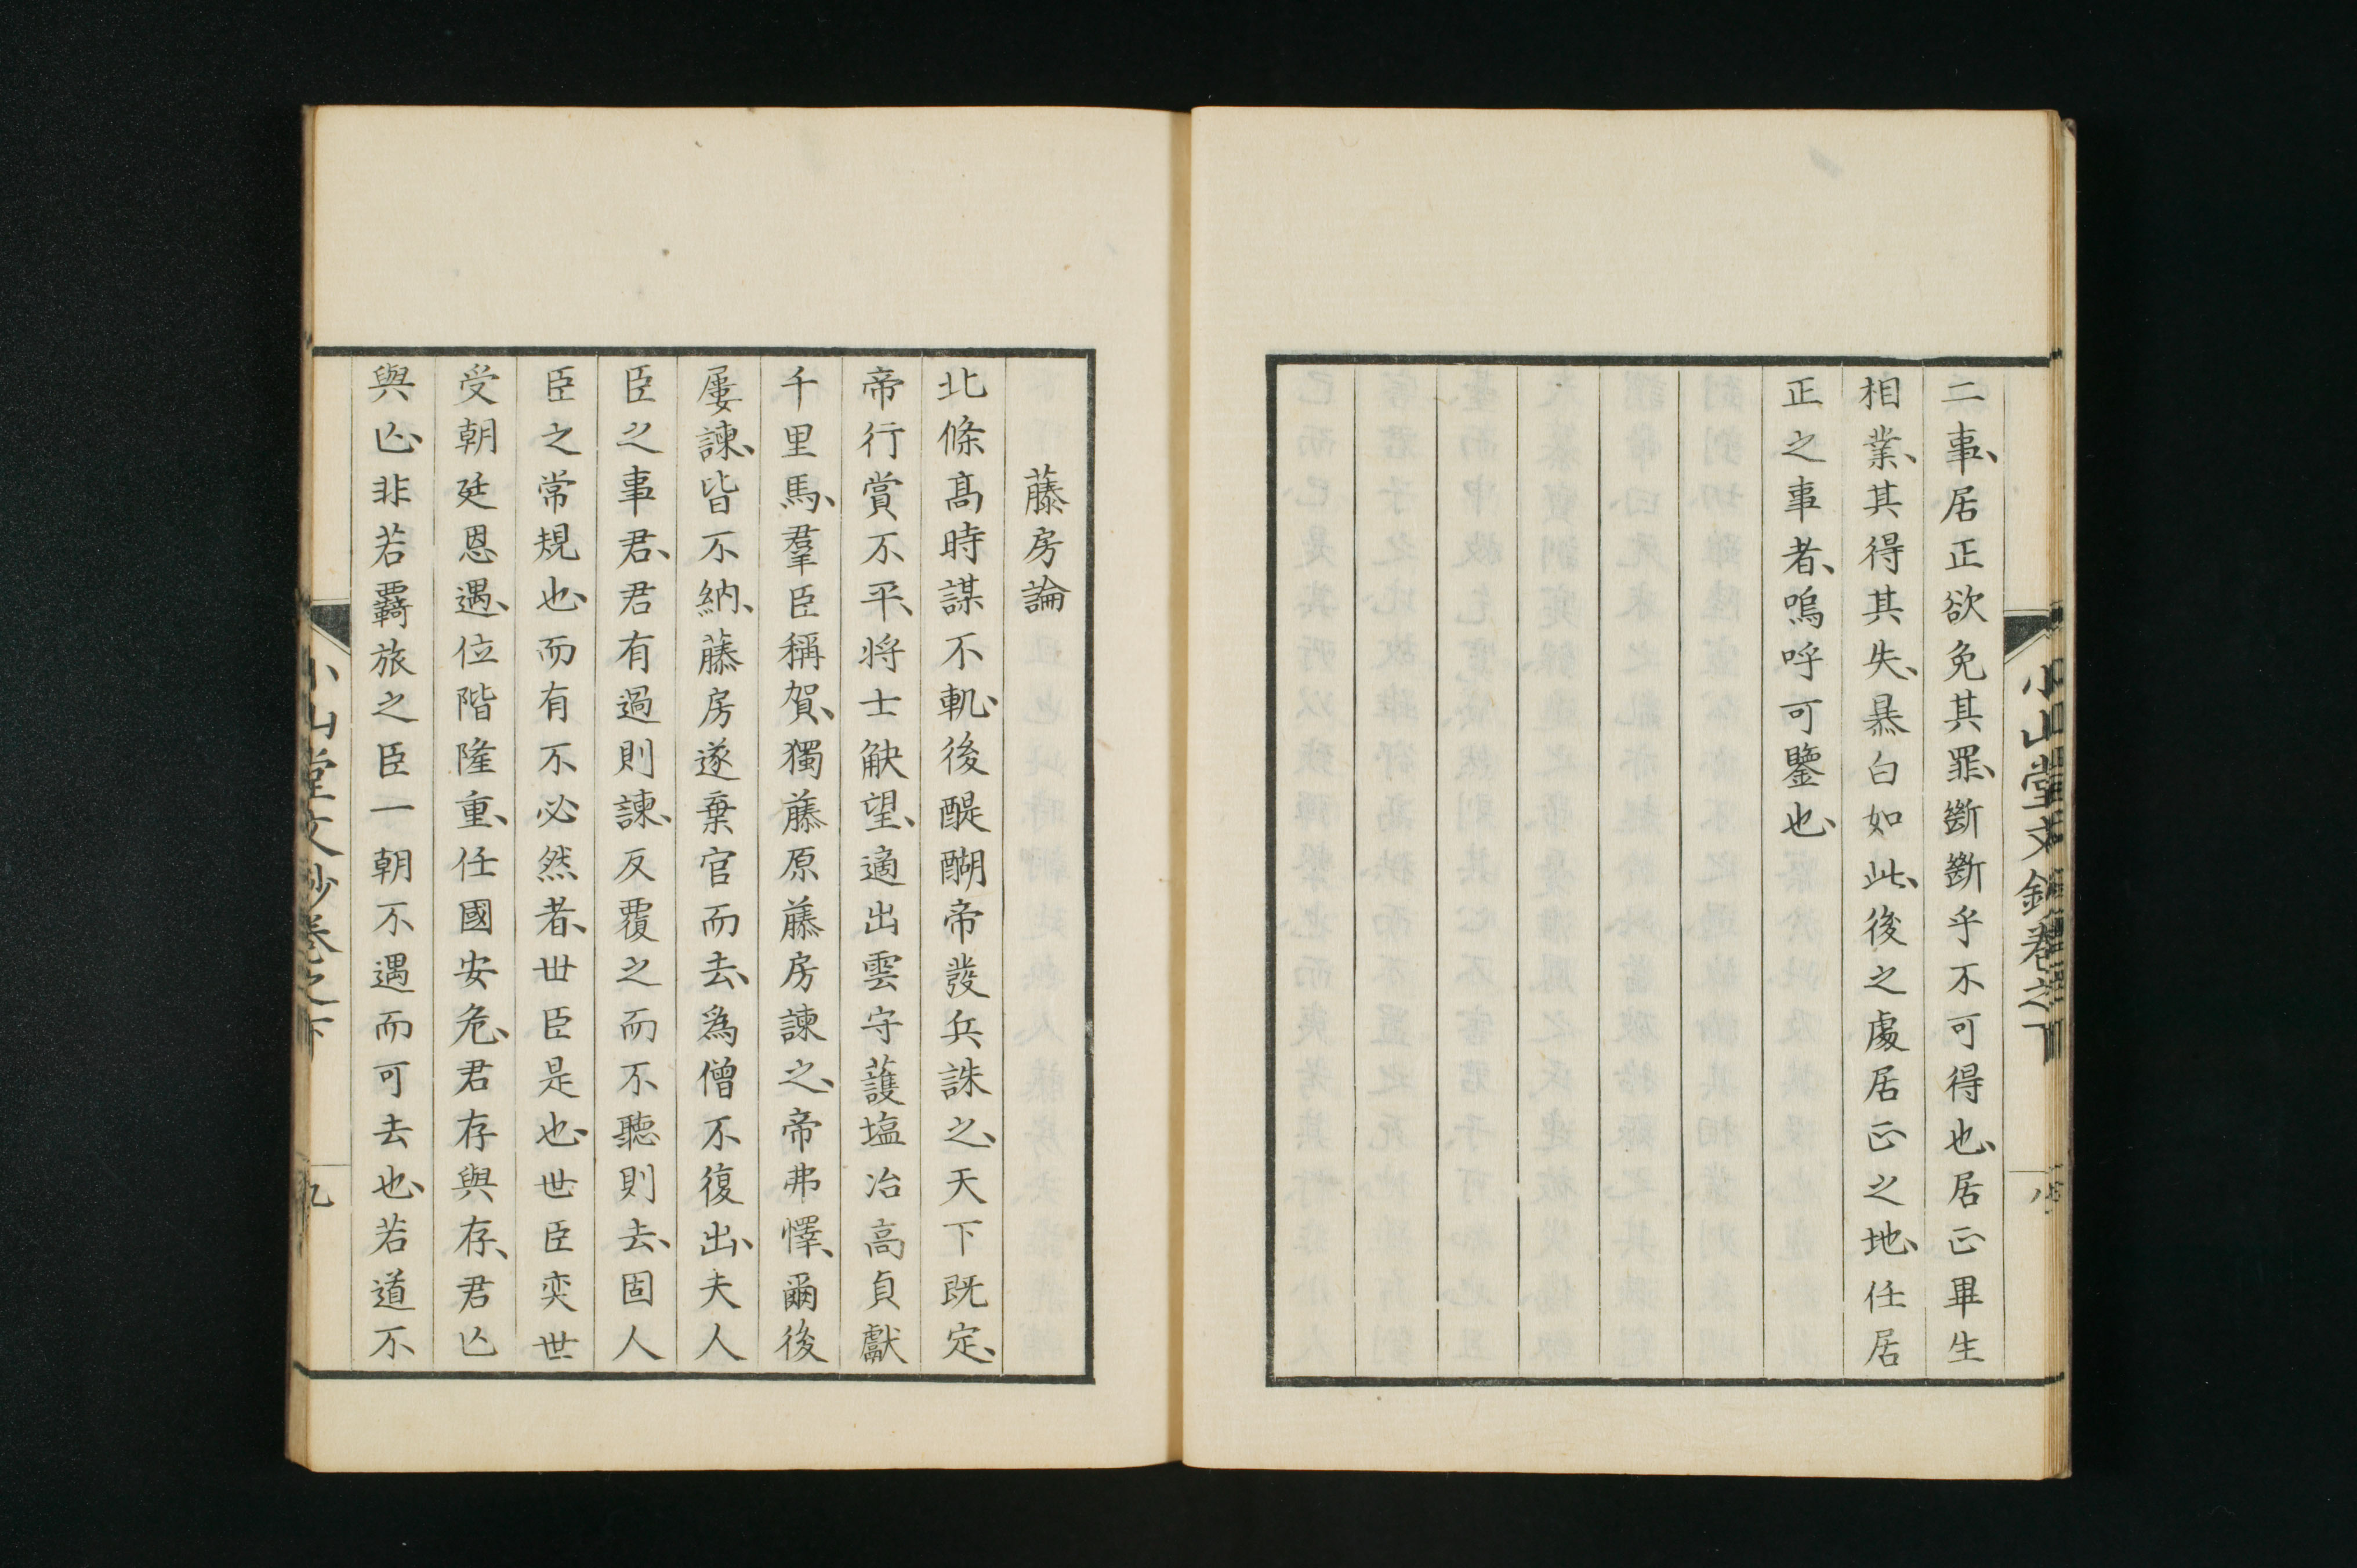 二事、居正欲免其罪、斷斷乎不可得也、居正畢生
相業、其得其失、暴白如此、後之處居正之地、任居
正之事者、嗚呼可鑒也、
小山堂文鈔卷之下
八
藤房論
北條高時謀不軌、後醍醐帝發兵誅之、天下既定、
帝行賞不平、将士觖望、適出雲守護塩冶高貞獻
千里馬、羣臣稱賀、獨藤原藤房諫之、帝弗懌、爾後
屢諫、皆不納、藤房遂棄官而去、爲僧不復出、夫人
臣之事君、君有過則諫、反覆之而不聽則去、固人
臣之常規也、而有不必然者、世臣是也、世臣奕世
受朝廷恩遇、位階隆重、任國安危、君存與存、君亾
與亾、非若覊旅之臣一朝不遇而可去也、若道不
小山堂文鈔卷之下
九